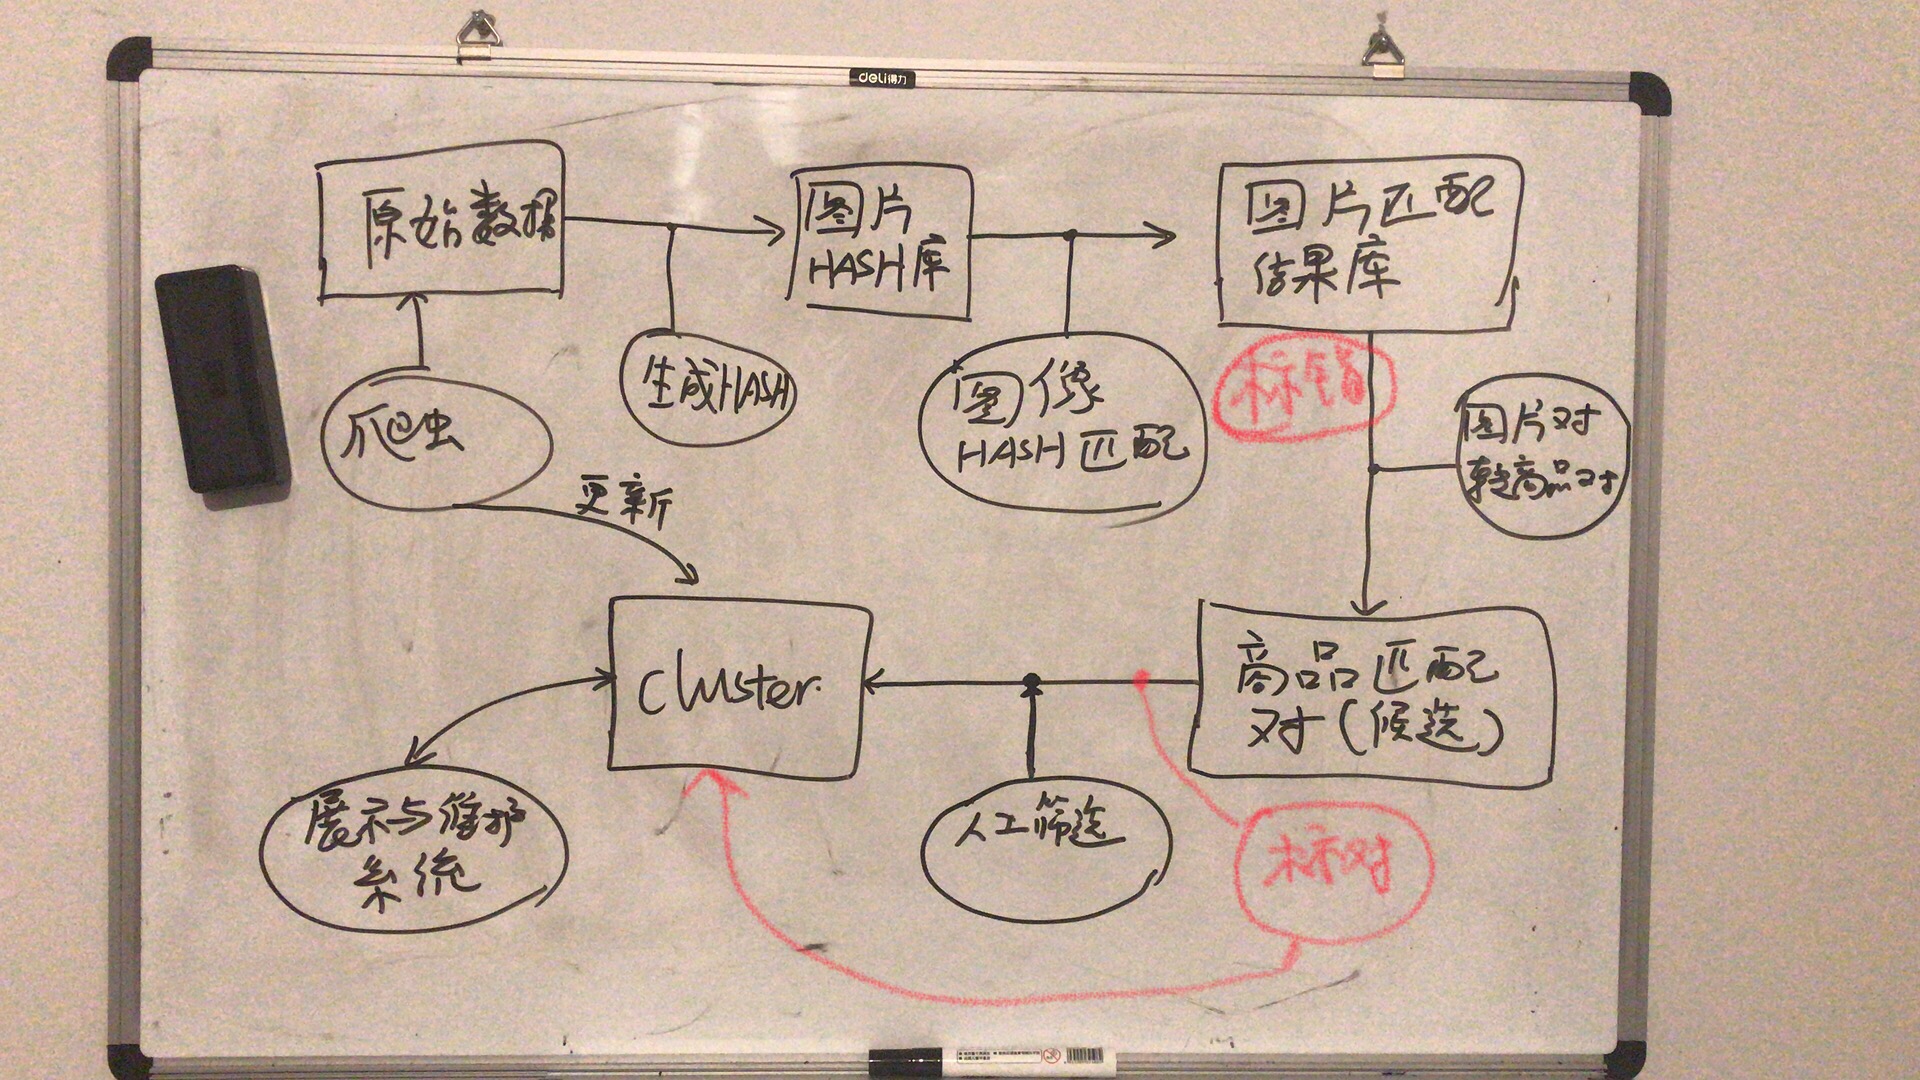 deli得力
原始数据
图片
HASH库
图片匹配
结果库
爬虫
生成HASH
图像
HASH匹配
标错
图片对
转商品对
更新
cluster
商品匹配
对(候选)
展示与维护
系统
人工筛选
标对